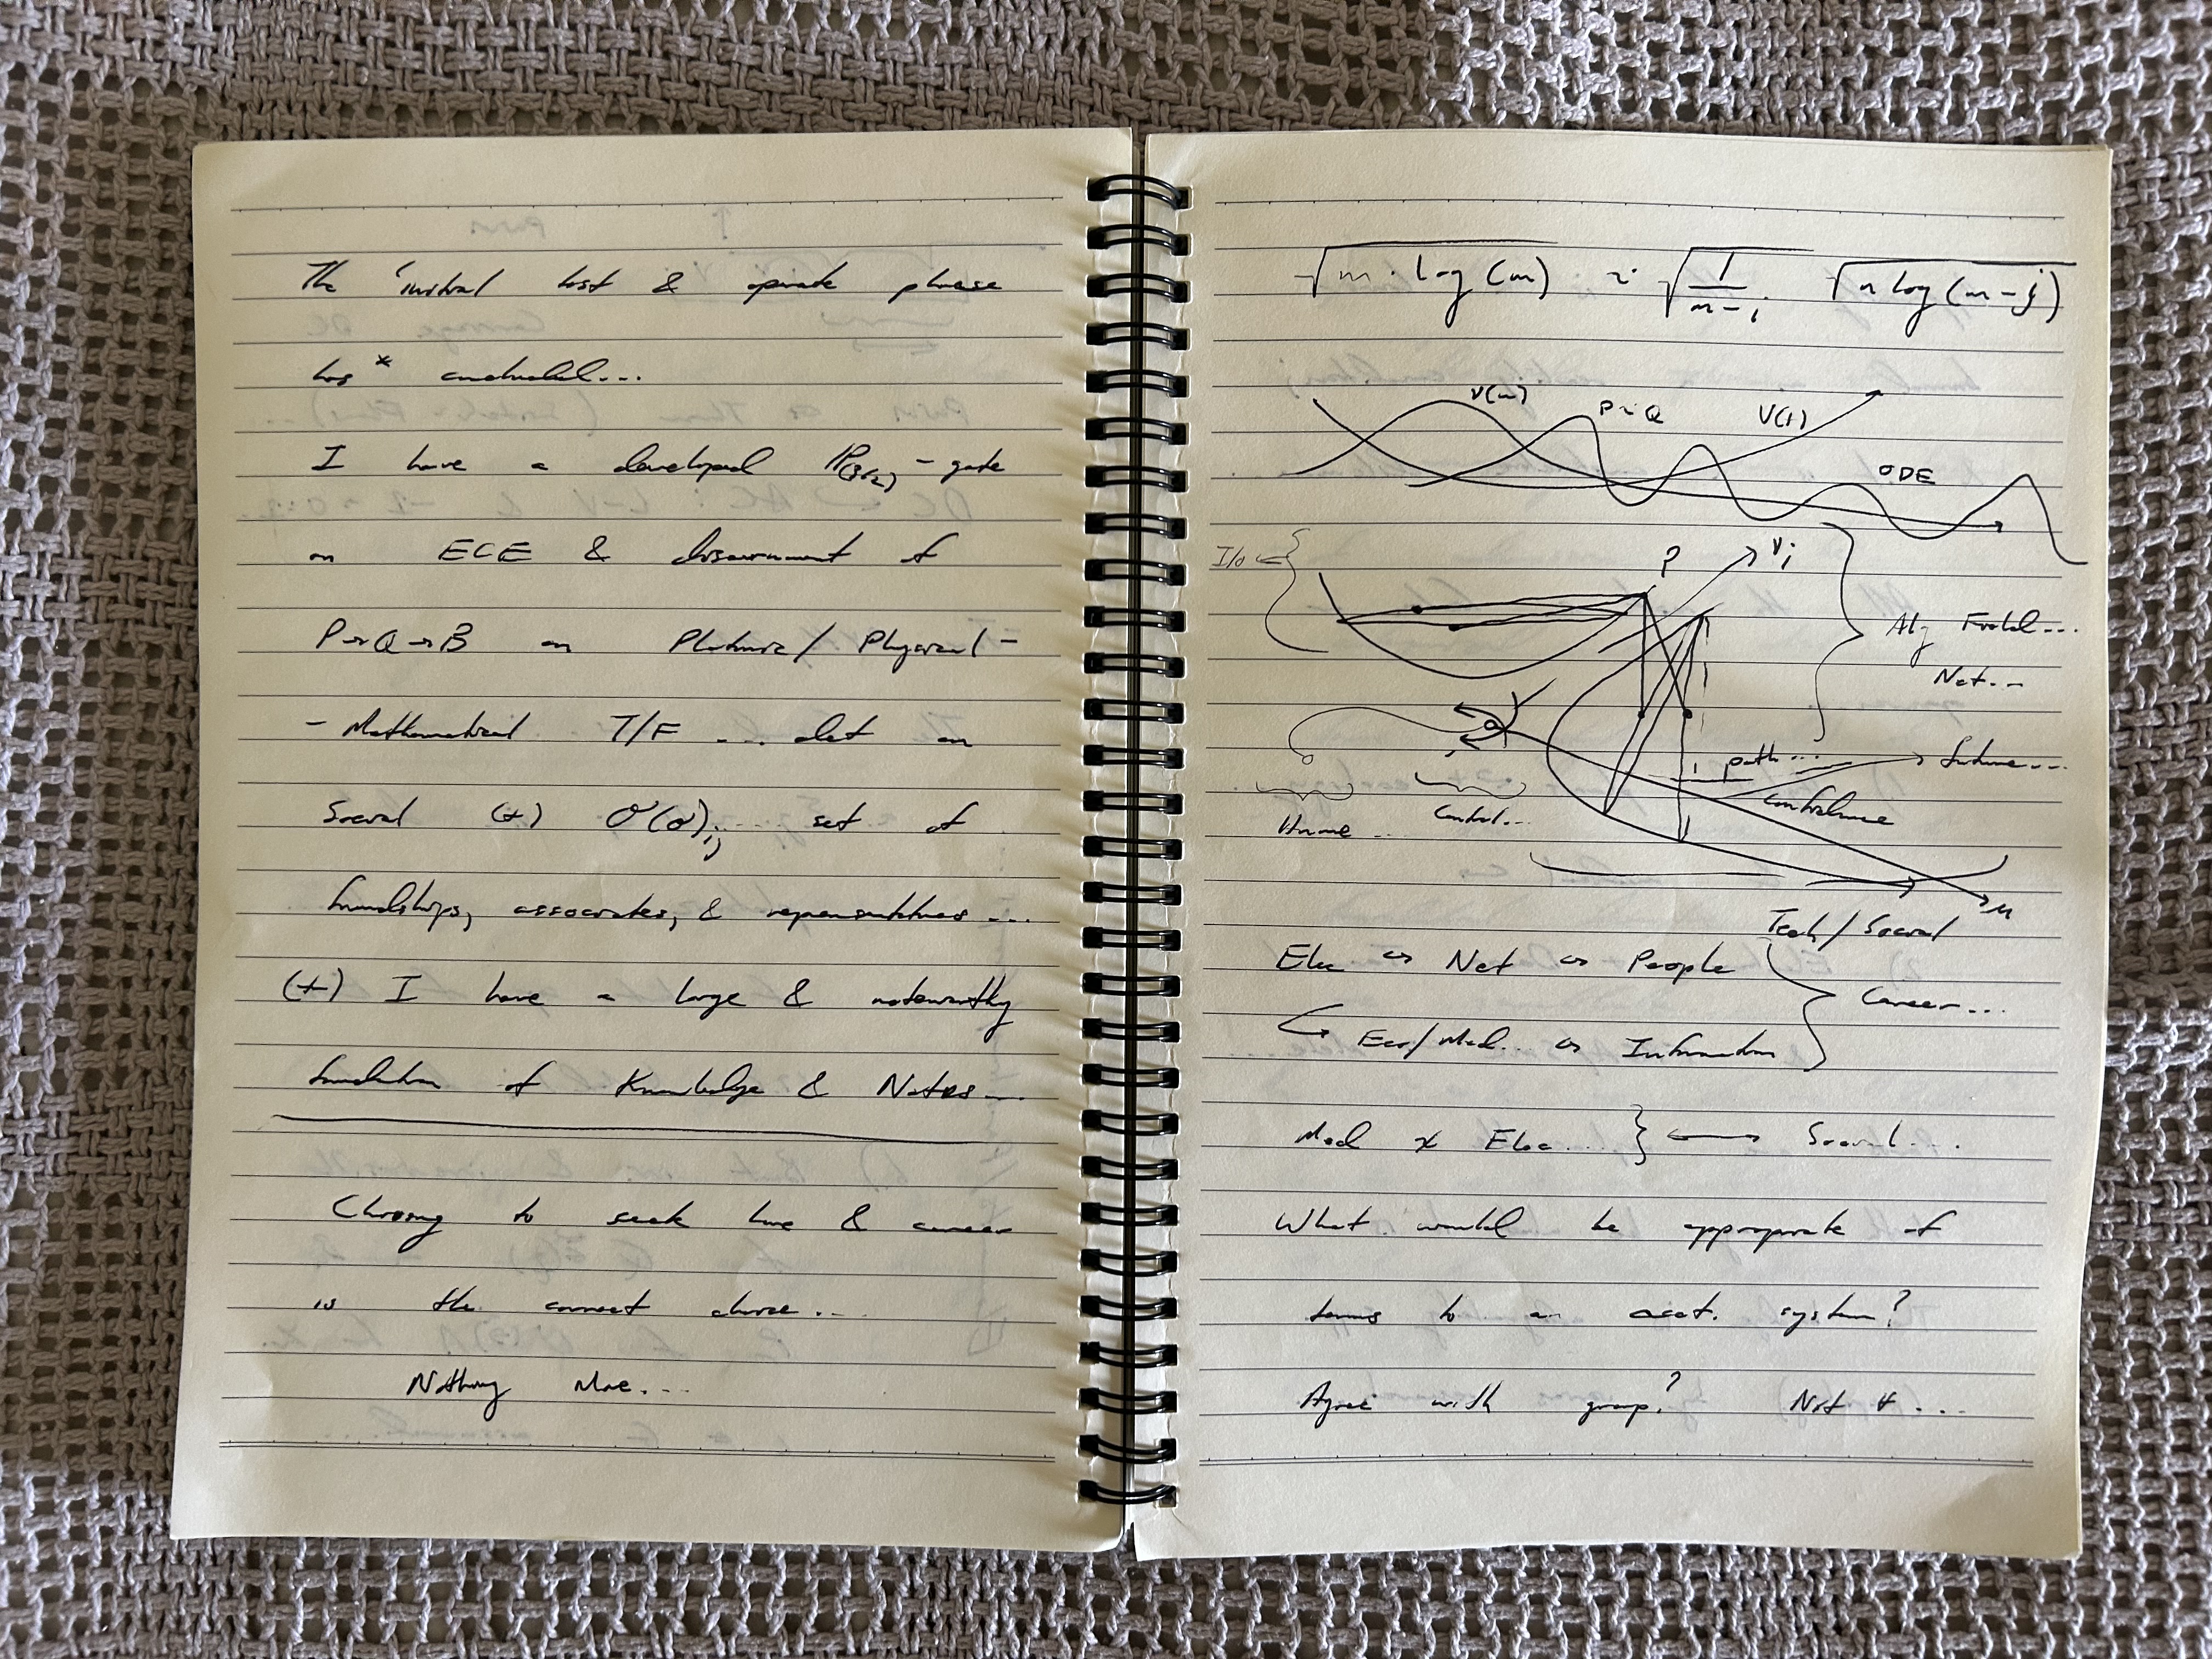 The initial test & operate phase
has * concluded...
I have a developed P(3/2)-gate
on ECE & discernment of
P→Q→B on Platonic/Physical-
- Mathematical T/F ... det on
Social (+) O(σ)ij... set of
friendships, associates, & representatives...
(+) I have a large & noteworthy
foundation of Knowledge & Notes...
Choosing to seek love & career
is the correct choice...
Nothing More...
√m · log(m) ~ √1/m-i · √n log(m-j)
V(m) P~Q V(t)
ODE
I/o P Vj
Alg Field...
Net...
path... future...
Home... Control... Confidence
m
Tech/Social
Elec ↔ Net ↔ People
Career...
↪ Eco/Med... ↔ Information
Med x Elec... } ↔ Social...
What would be appropriate of
terms to an acct. system?
Agree with group? Not #...